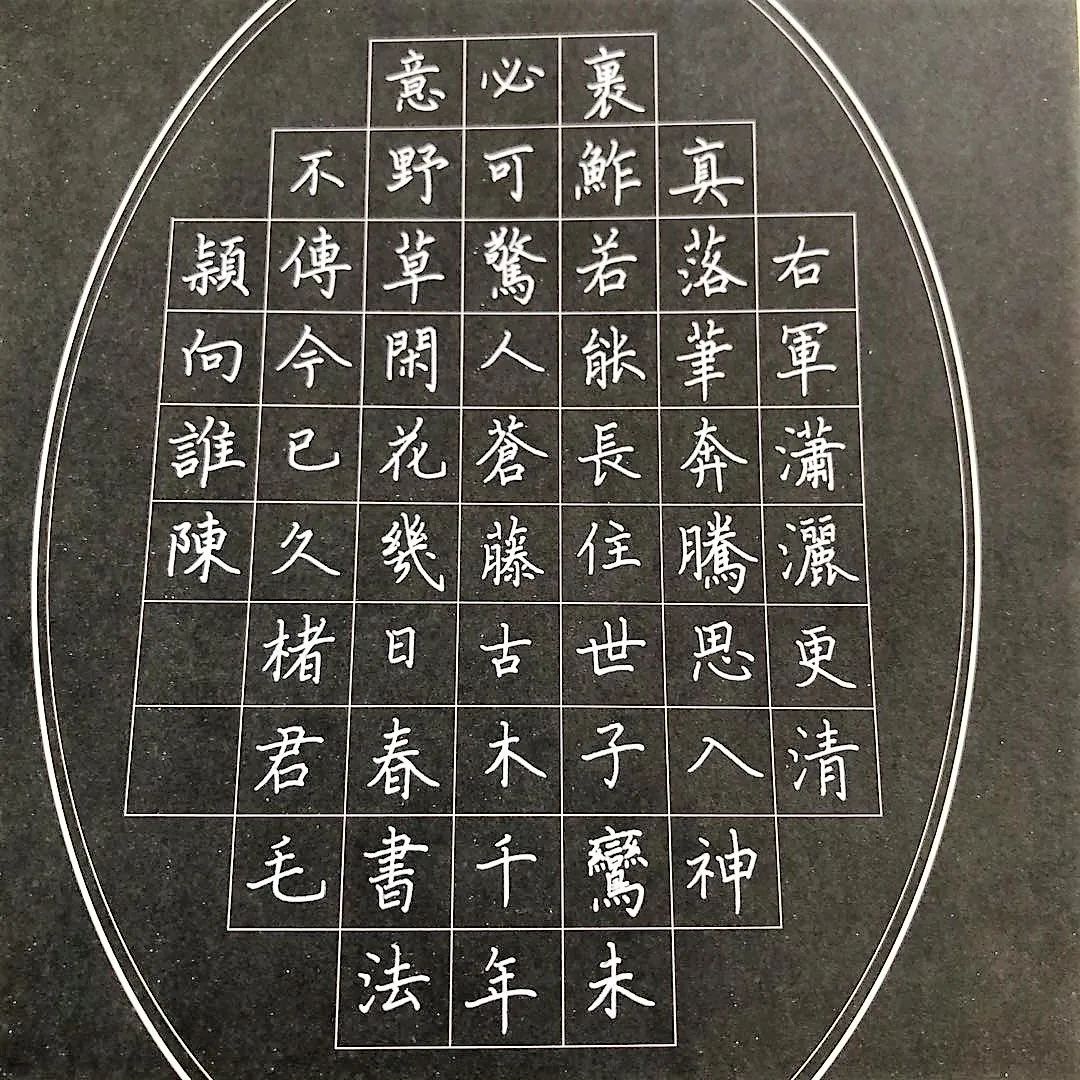 右軍瀟灑更清
真落筆奔騰思入神
裹鮓若能長住世子鸞未
必可驚人蒼藤古木千年
意野草閑花幾日春書法
不傳今已久楮君毛
穎向誰陳